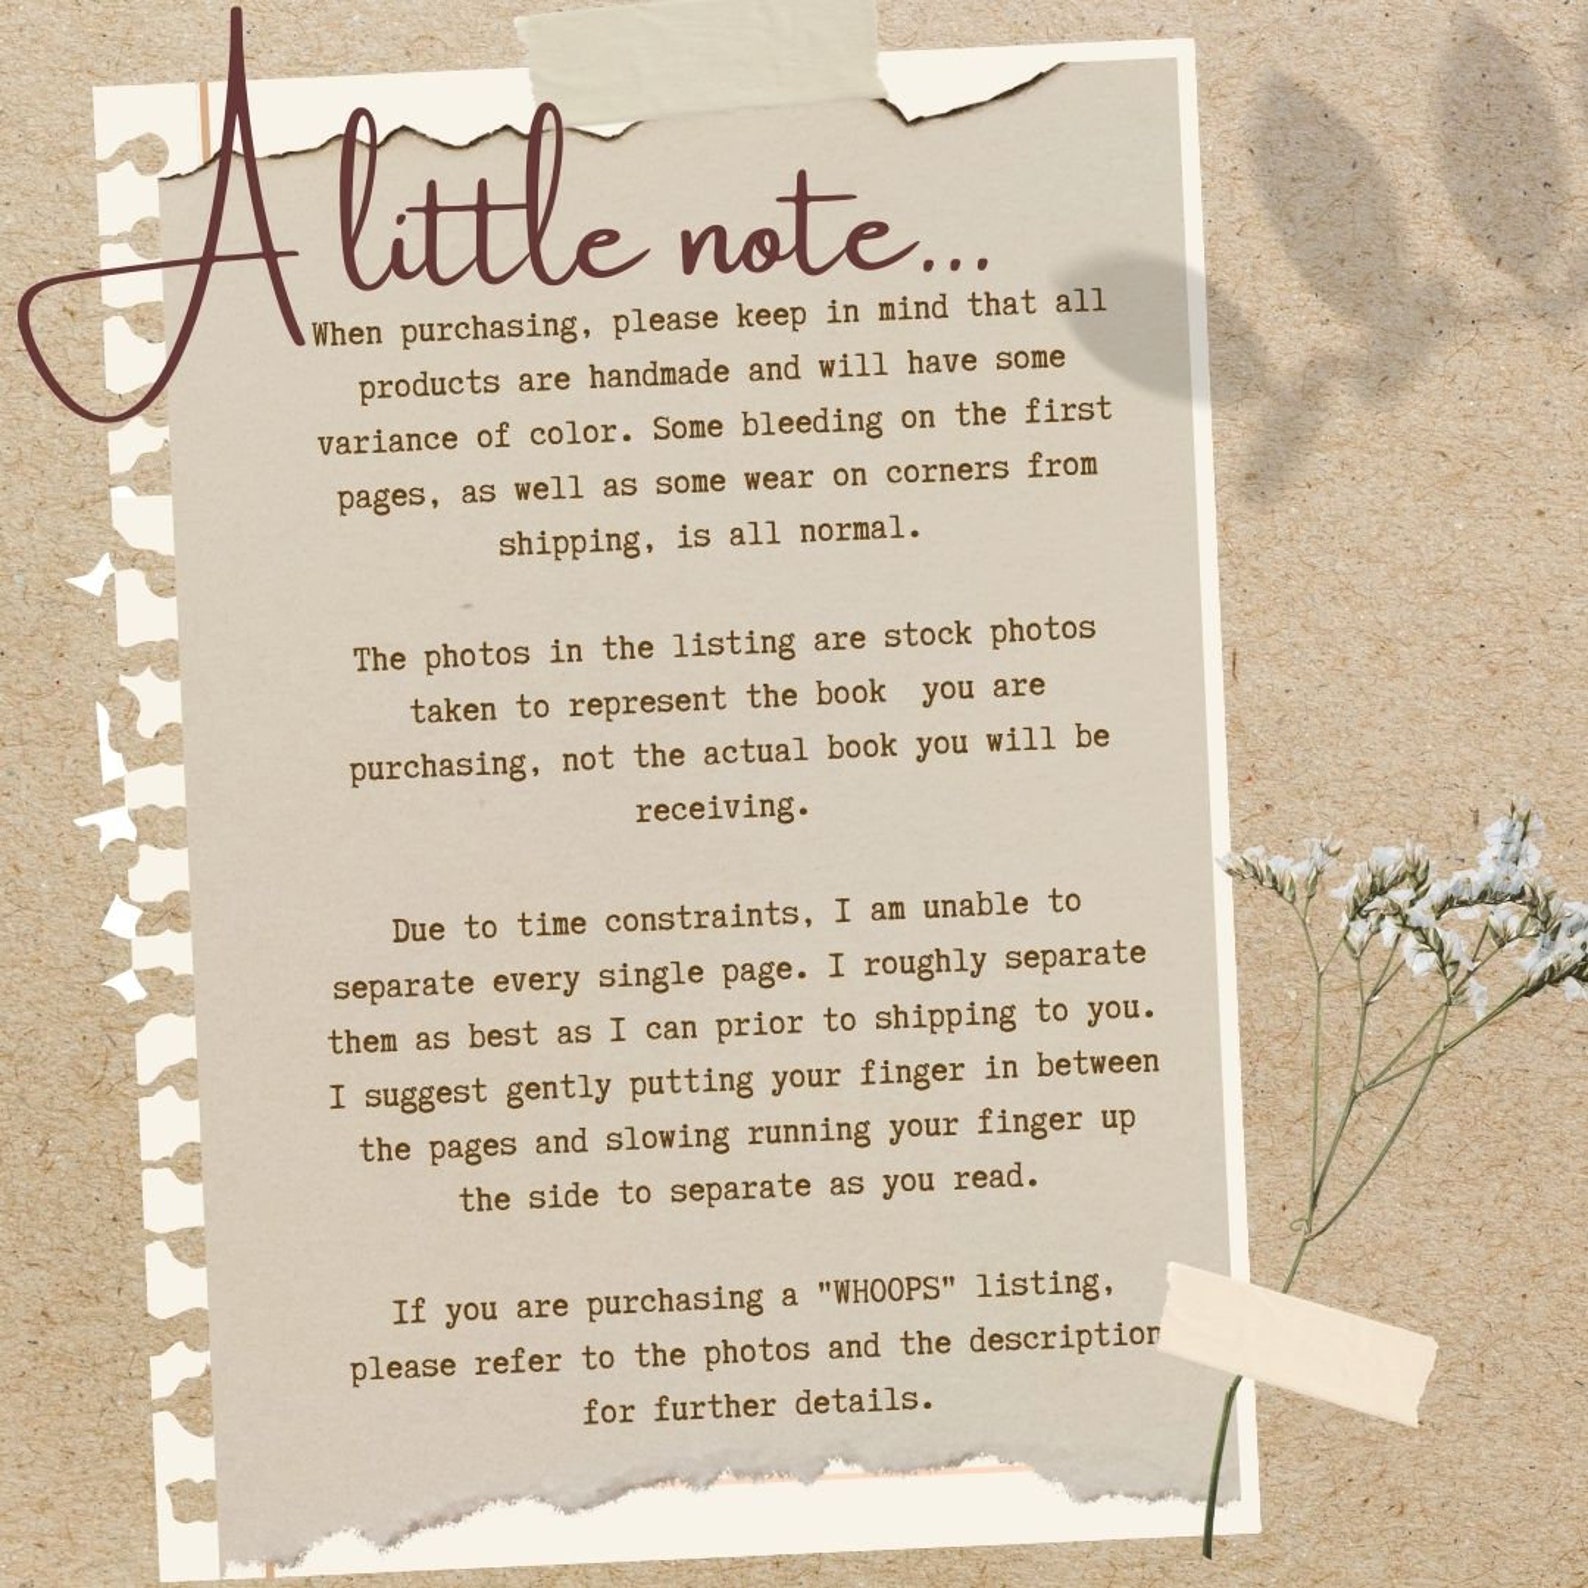 A little note...
When purchasing, please keep in mind that all
products are handmade and will have some
variance of color. Some bleeding on the first
pages, as well as some wear on corners from
shipping, is all normal.
The photos in the listing are stock photos
taken to represent the book you are
purchasing, not the actual book you will be
receiving.
Due to time constraints, I am unable to
separate every single page. I roughly separate
them as best as I can prior to shipping to you.
I suggest gently putting your finger in between
the pages and slowing running your finger up
the side to separate as you read.
If you are purchasing a "WHOOPS" listing,
please refer to the photos and the description
for further details.